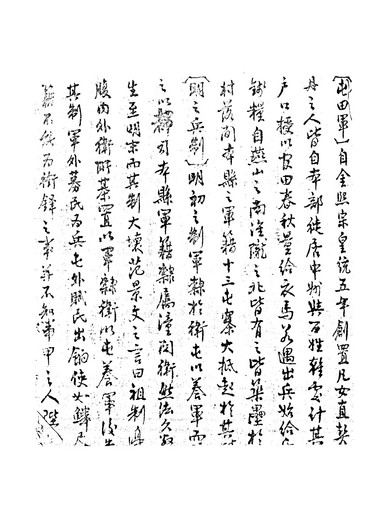 〔屯田軍〕自金熙宗皇統五年創置凡女直契
丹之人皆自本部徙居中州與百姓雜處計其
戶口授以官田春秋量給衣馬若遇出兵始給
錢糧自燕山之南淮隴之北皆有之皆築壘於
村落間本縣之軍籍十三屯寨大抵起於其
〔明之兵制〕明初之制軍隸於衛屯以養軍而
之以都司本縣軍籍隸屬潼關衛然法久
生至明末而其制大壞范景文之言曰祖制
腹內外衛所棊置以軍隸衛以屯養軍後
其制軍外募民為兵屯外賦民出餉使如鱗
籍不能為衝鋒之事并不知帶甲之人